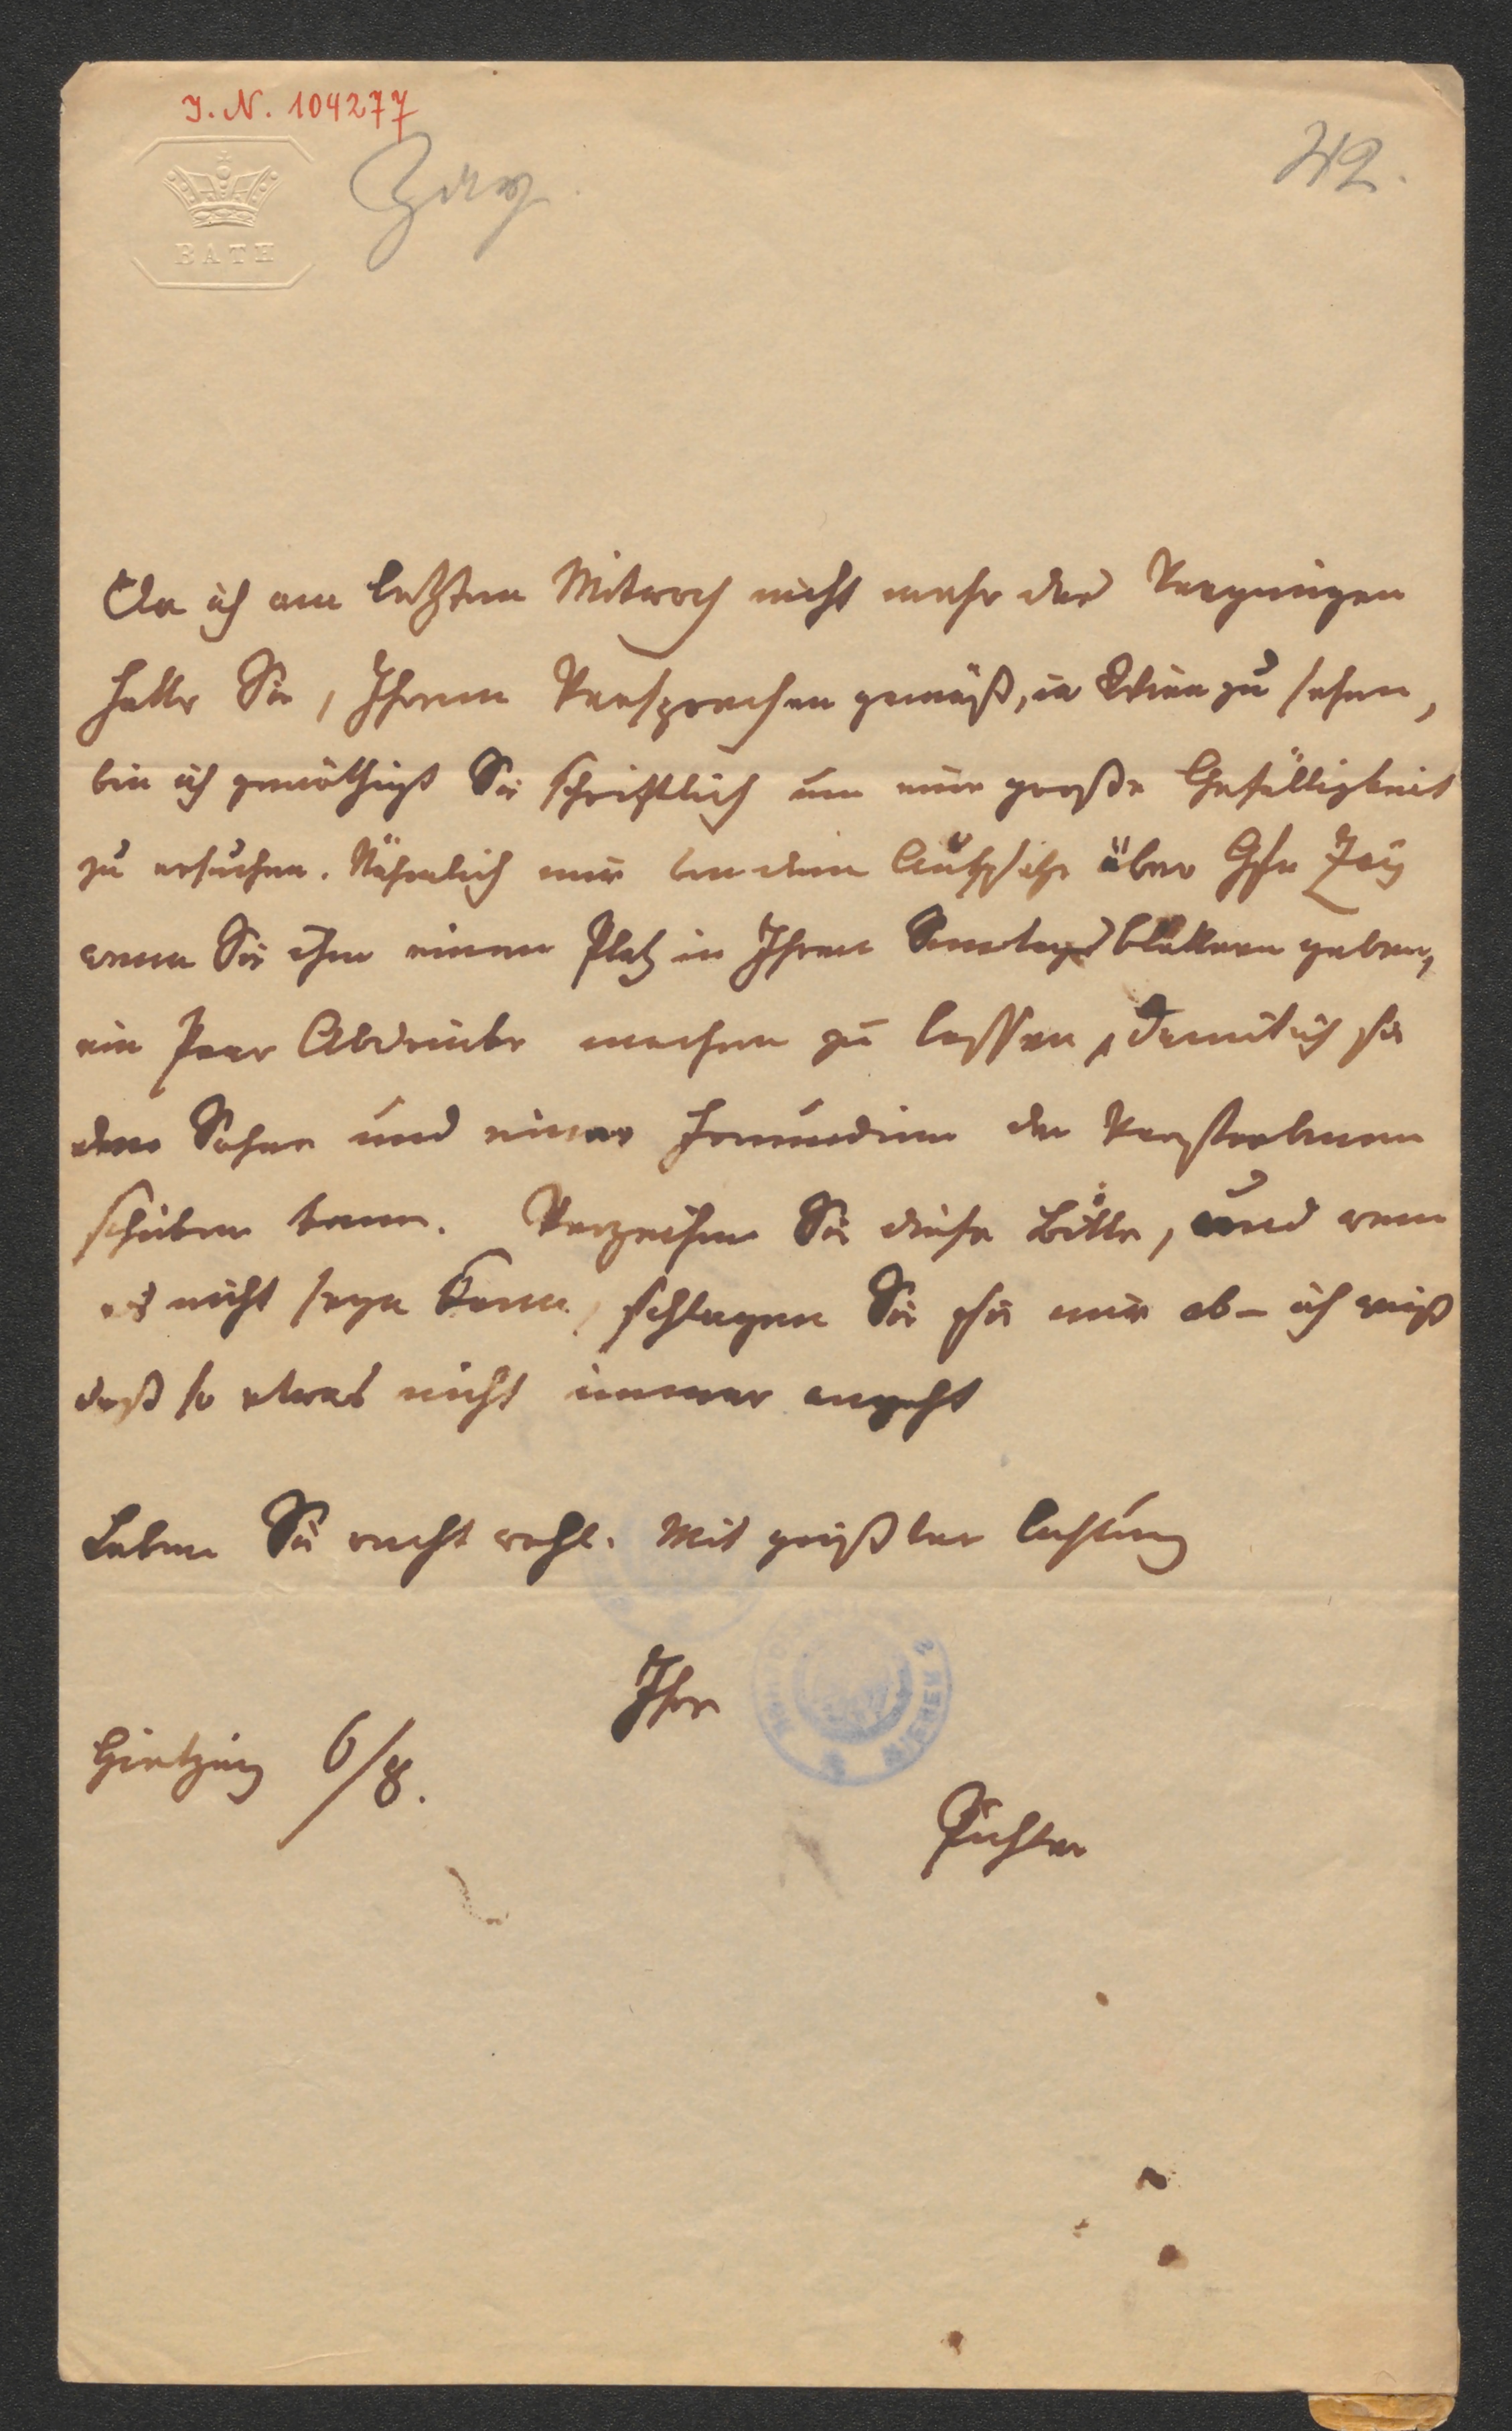 I. N. 104277
BATH
Zay.
W2.
Da ich am letzten Mitwoch nicht mehr das Vergnügen
hatte Sie, Ihrem Versprechen gemäß, in Wien zu sehen,
bin ich genöthigt Sie schriftlich um eine große Gefälligkeit
zu ersuchen. Nähmlich mir von dem Aufsatze über Gfn Zay
wenn Sie ihm einen Platz in Ihren Sonntagsblättern geben,
ein Paar Abdrücke machen zu lassen, damit ich sie
dem Sohne und einer Freundinn der Verstorbenen
schicken kann. Verzeihen Sie diese Bitte, und wenn
es nicht seyn kann, schlagen Sie sie mir ab – ich weiß
daß so etwas nicht immer angeht
Leben Sie recht wohl. Mit größter Achtung
Ihre
Hietzing 6/8.
Pichler